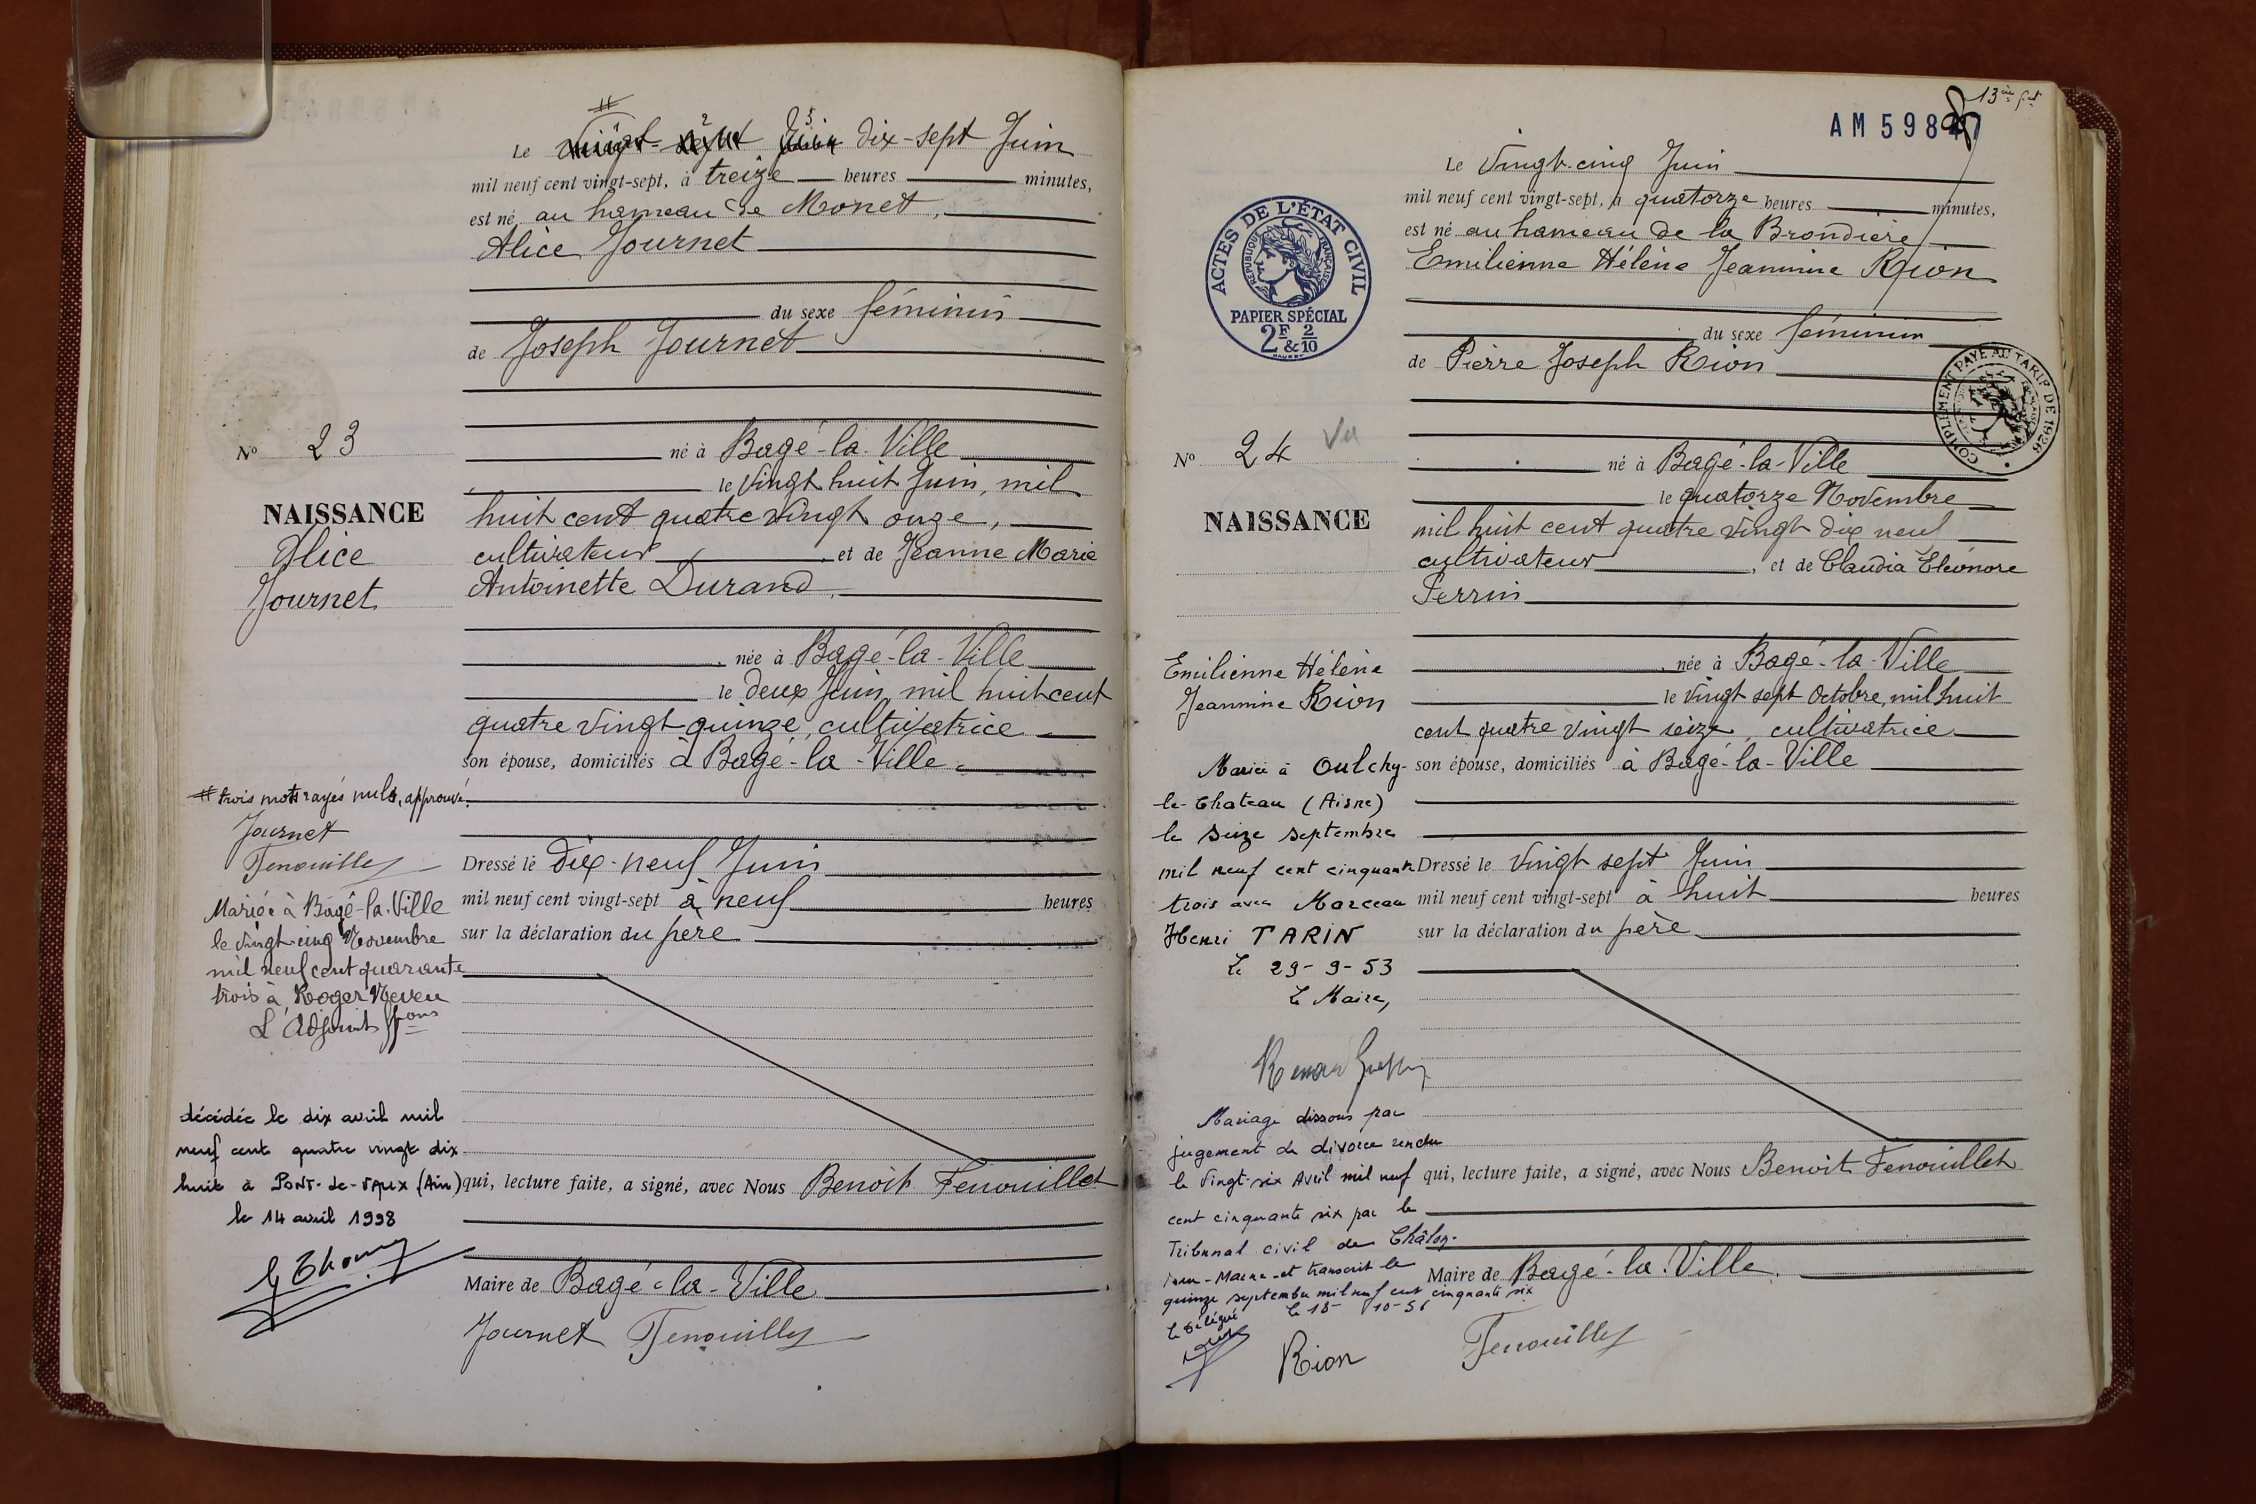 Le dix-sept Juin
mil neuf cent vingt-sept, à treize heures minutes,
est né au hameau de Monet,
Alice Journet
du sexe féminin
de Joseph Journet
né à Bagé-la-Ville
le vingt huit Juin, mil
huit cent quatre vingt onze,
cultivateur, et de Jeanne Marie
Antoinette Durand,
née à Bagé-la-Ville
le deux Juin mil huit cent
quatre vingt quinze, cultivatrice
son épouse, domiciliés à Bagé-la-Ville
Dressé le dix-neuf Juin
mil neuf cent vingt-sept à neuf heures
sur la déclaration du père
qui, lecture faite, a signé, avec Nous Benoit Fenouillet
Maire de Bagé-la-Ville
Journet Fenouillet
No 23
NAISSANCE
Alice
Journet
# trois mots rayés nuls, approuvé.
Journet
Fenouillet
Mariée à Bagé-la-Ville
le vingt-cinq Novembre
mil neuf cent quarante
trois à Roger Neveu
L'Adjoint
décédée le dix avril mil
neuf cent quatre vingt dix
huit à PONT-de-VAUX (Ain)
le 14 avril 1998
13
AM598
Le vingt-cinq Juin
mil neuf cent vingt-sept, à quatorze heures minutes,
est né au hameau de la Brondière
Emilienne Hélène Jeannine Rion
du sexe féminin
de Pierre Joseph Rion
né à Bagé-la-Ville
le quatorze Novembre
mil huit cent quatre vingt dix neuf
cultivateur, et de Claudia Eléonore
Perrin
née à Bagé-la-Ville
le vingt sept Octobre, mil huit
cent quatre vingt seize, cultivatrice
son épouse, domiciliés à Bagé-la-Ville
Dressé le vingt sept Juin
mil neuf cent vingt-sept à huit heures
sur la déclaration du père
qui, lecture faite, a signé, avec Nous Benoit Fenouillet
Maire de Bagé-la-Ville
Rion Fenouillet
ACTES DE L'ÉTAT CIVIL
RÉPUBLIQUE FRANÇAISE
PAPIER SPÉCIAL
2F & 2/10
COMPLEMENT PAYÉ AU TARIF DE 1926
No 24 Vu
NAISSANCE
Emilienne Hélène
Jeannine Rion
Mariée à Oulchy-
le-Chateau (Aisne)
le seize septembre
mil neuf cent cinquante
trois avec Marceau
Henri TARIN
Le 29-9-53
Le Maire,
Mariage dissous par
jugement de divorce rendu
le Vingt-six Avril mil neuf
cent cinquante six par le
Tribunal civil de Châlons-
sur-Marne et transcrit le
quinze septembre mil neuf cent cinquante six
le 18-10-56
Le Délégué